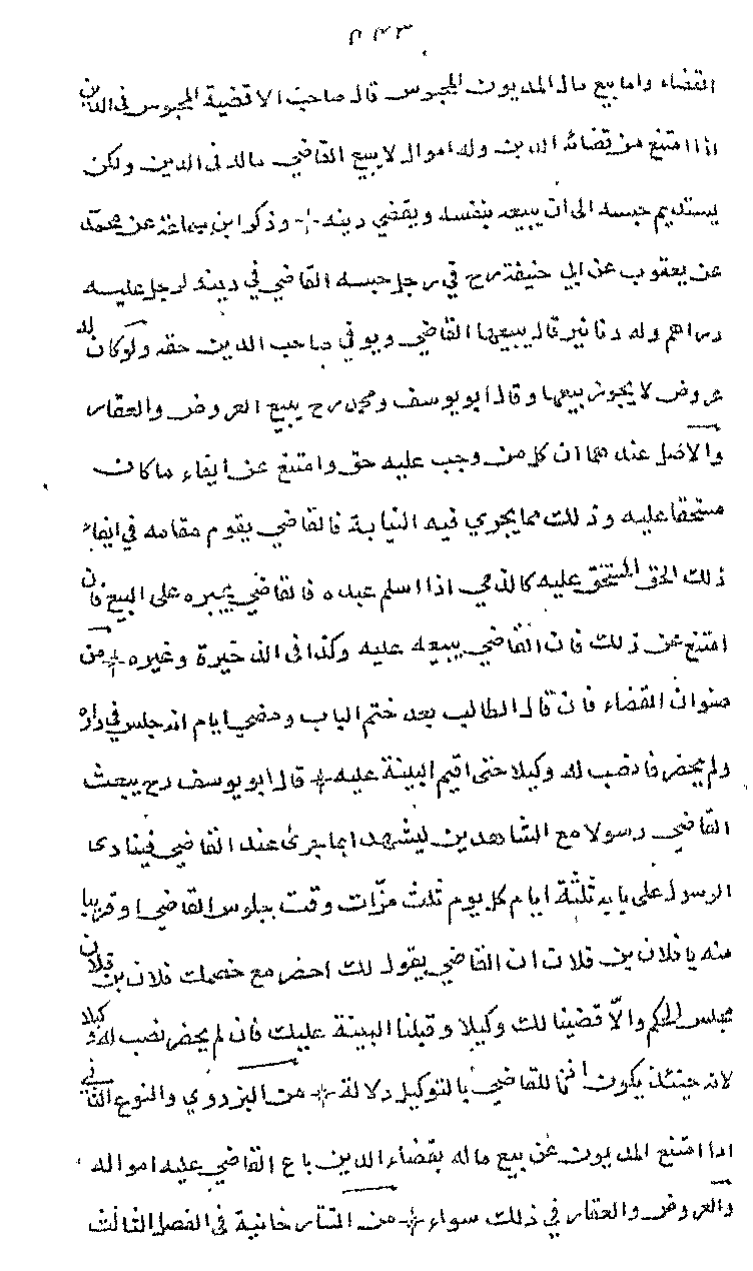 القضاء واما بيع مال المديون المحبوس قال صاحب الاقضية المحبوس فى الدين
اذا امتنع من قضائه الدين وله اموال لا يبيع القاضي ماله فى الدين ولكن
يستديم حبسه الى ان يبيعه بنفسه ويقضي دينه وذكر ابن سماعة عن محمد
عن يعقوب عن ابي حنيفة رح في رجل حبسه القاضي في دينه لرجل عليه
دراهم وله دنانير قال يبيعها القاضي ويوفي صاحب الدين حقه ولو كان له
عروض لا يجوز بيعها وقال ابو يوسف ومحمد رح يبيع العروض والعقار
والاصل عندهما ان كل من وجب عليه حق وامتنع عن ايفاء ما كان
مستحقا عليه وذلك مما يجري فيه النيابة فالقاضي يقوم مقامه في ايفاء
ذلك الحق المستحق عليه كالذمي اذا اسلم عبده فالقاضي يجبره على البيع فان
امتنع عن ذلك فان القاضي يبيعه عليه وكذا فى الذخيرة وغيره من
صنوان القضاء فان قال الطالب بعد ختم الباب ومضي ايام انه جلس في داره
ولم يحضر فانصب له وكيلا حتى اقيم البينة عليه قال ابو يوسف رح يبعث
القاضي رسولا مع الشاهدين ليشهدا بما يجرى عند القاضي فينادى
الرسول على بابه ثلثة ايام كل يوم ثلث مرّات وقت جلوس القاضي او قريبا
منه يا فلان بن فلان ان القاضي يقول لك احضر مع خصمك فلان بن فلان
مجلس الحكم والاّ قضينا لك وكيلا وقبلنا البينة عليك فان لم يحضر نصب له وكيلا
لانه حينئذ يكون اذنا للقاضي بالتوكيل دلالة من البزدوي والنوع الثاني
اذا امتنع المديون عن بيع ماله بقضاء الدين باع القاضي عليه امواله
والعروض والعقار في ذلك سواء من التتارخانية فى الفصل الثالث